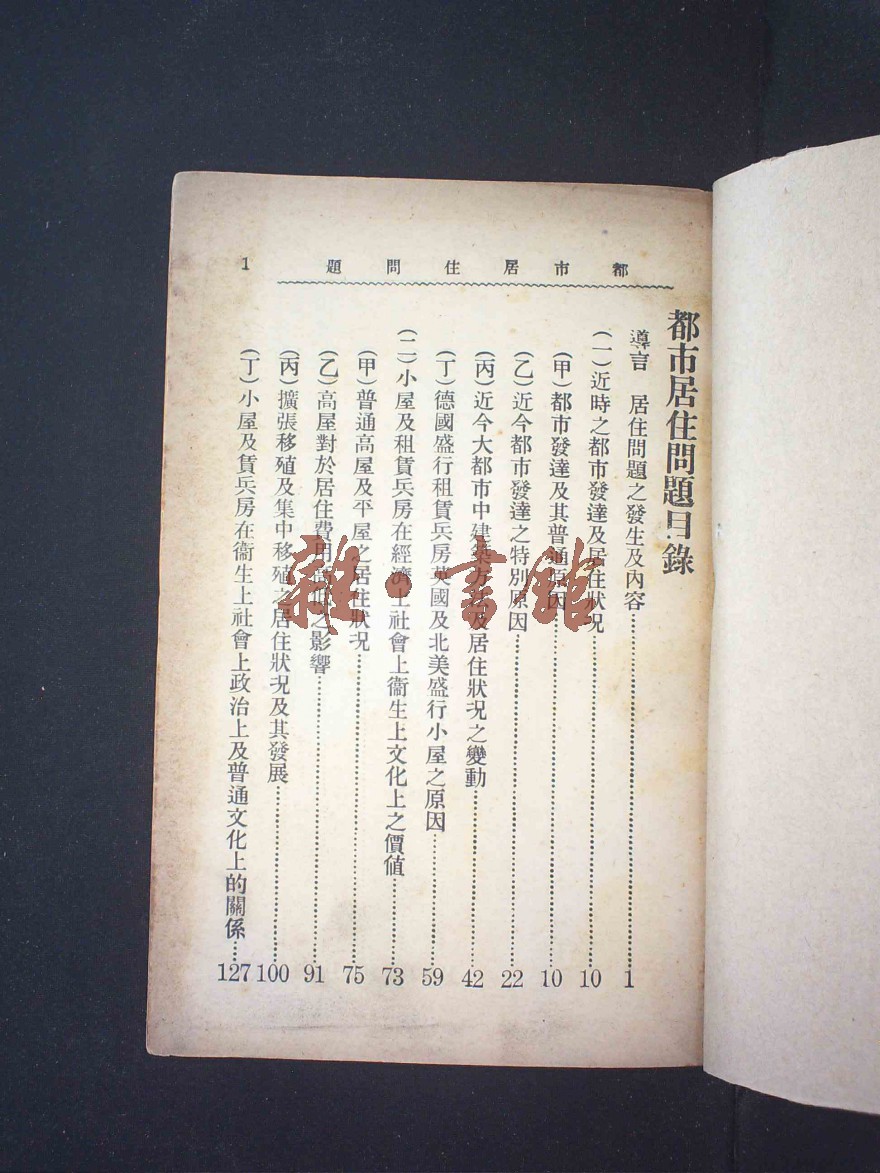 都市居住問題 1
都市居住問題目錄
導言 居住問題之發生及內容……1
(一)近時之都市發達及居住狀况……10
(甲)都市發達及其普通原因……10
(乙)近今都市發達之特別原因……22
(丙)近今大都市中建築方法及居住狀况之變動……42
(丁)德國盛行租賃兵房英國及北美盛行小屋之原因……59
(二)小屋及租賃兵房在經濟上社會上衞生上文化上之價值……73
(甲)普通高屋及平屋之居住狀况……75
(乙)高屋對於居住費用高低之影響……91
(丙)擴張移殖及集中移殖之居住狀况及其發展……100
(丁)小屋及賃兵房在衞生上社會上政治上及普通文化上的關係……127
雜·書館